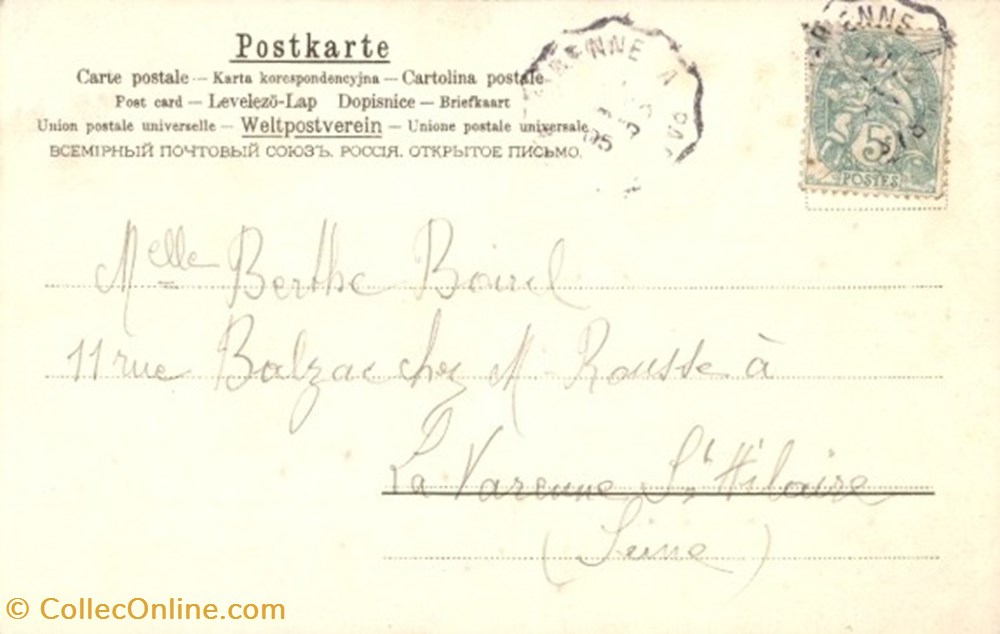 Postkarte
Carte postale — Karta korespondencyjna — Cartolina postale
Post card — Levelező-Lap Dopisnice — Briefkaart
Union postale universelle — Weltpostverein — Unione postale universale
ВСЕМІРНЫЙ ПОЧТОВЫЙ СОЮЗЪ. РОССІЯ. ОТКРЫТОЕ ПИСЬМО.
RENNE A
05
ENNE A
5
POSTES
Melle Berthe Boirel
11 rue Balzac chez Mr Rousse à
La Varenne St Hilaire
(Seine)
© CollecOnline.com